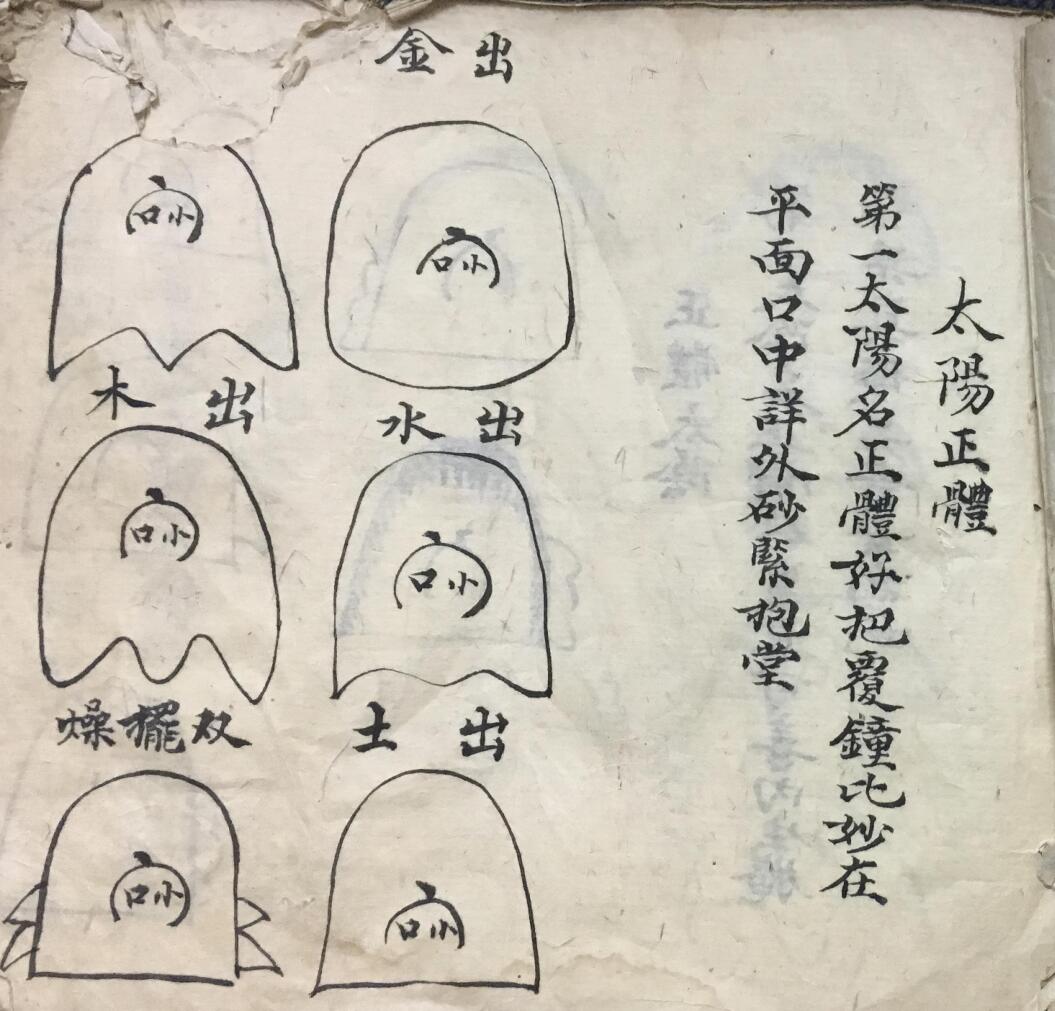 太陽正體
第一太陽名正體好把覆鐘比妙在
平面口中詳外砂緊抱堂
出金
小口
出水
小口
出土
小口
小口
出木
小口
双擺燥
小口